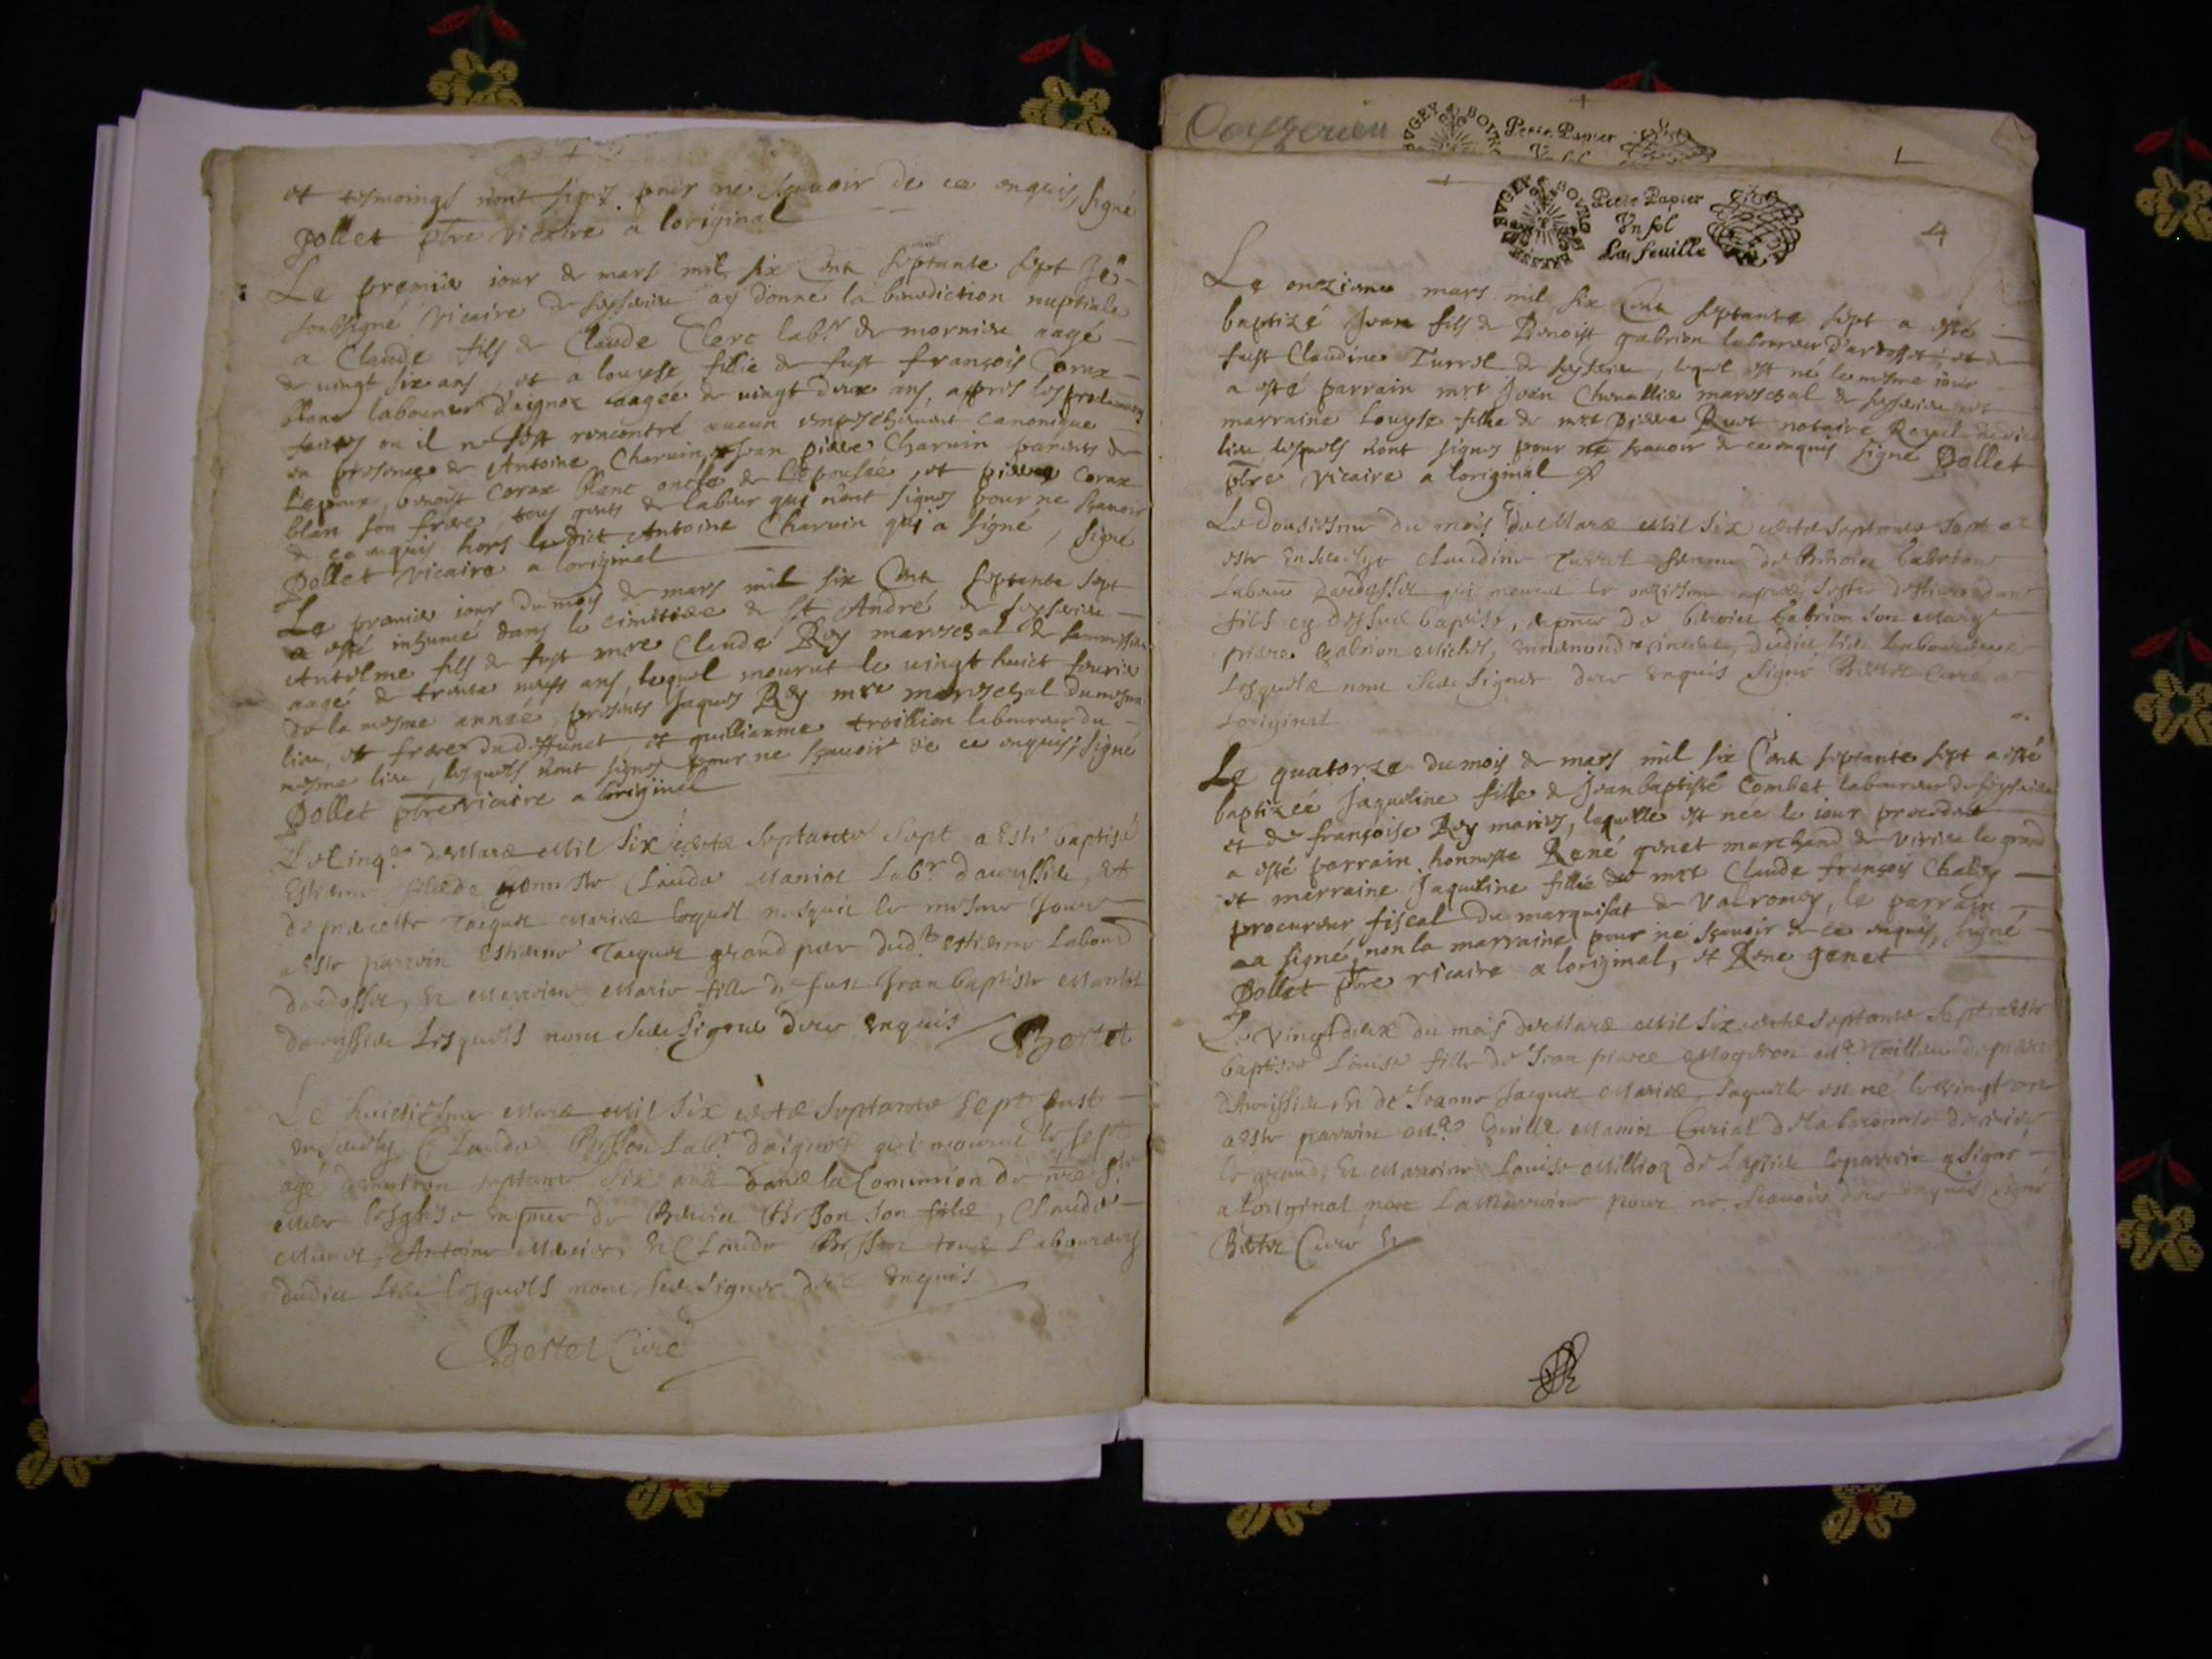 et tesmoings n'ont signez pour ne sçauoir de ce enquis, signé
Dollet pbre vicaire a loriginal
Le premier iour de mars mil six Cent septante sept Je
soubsigné vicaire de seysserieu ay donné la benediction nuptiale
a Claude fils de Claude Clerc labr de mornieu aagé
de uingt six ans, et a louyse fillie de fust françois Corax
blanc laboureur d'aignoz aagée de uingt deux ans, appres les proclama
faictes ou il ne s'est rencontré aucun empeschement canonique
en presence de Antoine Charuin, et Jean pierre Charuin parents de
l'espoux, benoist Corax blanc oncle de l'espousée, et pierre Corax
blan son frere, tous gents de labeur qui n'ont signes pour ne sçauoir
de ce enquis hors ledict Antoine Charuin qui a signé, signé
Dollet vicaire a loriginal
Le premier iour du moys de mars mil six Cent septante sept
a esté inhumé dans le cimitiere de St André de seysserieu
Antelme fils de fust mre Claude Rey mareschal de
aagé de trente neufs ans, lequel mourut le uingt huict feurier
de la mesme année, presents Jaques Rey mre mareschal du mesme
lieu, et frere du deffunct, et guillianme troillion laboureur du
mesme lieu, lesquels n'ont signes pour ne sçauoir de ce enquis, signé
Dollet pbre vicaire a loriginal
Le Cinqe de Mars Mil Six Septante Sept a Esté baptisé
Estienne fils de honneste Claude Maniot Labr et
de Jacquet Mariés lequel nasquit le mesme Jour
a Esté parrin Estienne Jacquet grand pere dudt Estienne Labour
dardosset, Et Marrine Marie fille de fust Jean baptiste Maniot
Lesquels n'ont Sceu Signer de ce Enquis Bertet
Le huictiesme Mars Mil Six Septante Sept fust
Enseuely Claude Besson Labr daignos qui mourut le sept
agé denuiron septante Six ans dans la Comunion de nre Ste
Mere l'esglise de Benoict Besson son fils, Claude
Antoine Et Claude Besson tous Laboureurs
dudict Lieu lesquels n'ont Sceu Signer de ce Enquis
Bertet Curé
Petit Papier
BVGEY BOVR
Petit Papier
Vn sol
La feuille
4
Le onzieme mars mil six Cent septante sept a esté
baptizé Jean fils de Benoist gabrion laboureur d'ardosset, et de
fust Claudine Turrel de seysserieu, lequel est né le mesme iour
a esté parrain mre Jean Cheuallier mareschal de seysserieu et
marraine Louyse fillie de mre pierre Ruet notaire Royal dudi
lieu lesquels n'ont signes pour ne sçauoir de ce enquis signé Dollet
pbre vicaire a loriginal
Le dousiesme du mois de Mars Mil Six Septante Sept at
esté Enseuelye Claudine Turrel femme de Benoict Gabrion
Labour dardosset qui mourut le onziesme
fils cy dessus baptisé, de Benoict Gabrion Son Mary
pierre Gabrion dudict lieu Laboureurs
Lesquels n'ont Sceu Signer de ce Enquis Signé Bertet Curé a
Loriginal
Le quatorze du mois de mars mil six Cent septante sept a esté
baptizéé Jaqueline fille de Jean baptiste Combet laboureur de seysserieu
et de françoise Rey mariez, laquelle est née le iour precedent
a esté parrain honneste René genet marchand de Virieu le grand
et merraine Jaqueline fillie de mre Claude françois Chaley
procureur fiscal du marquisat de Valromey, le parrain
a signé, non la marraine pour ne sçauoir de ce enquis, signé
Dollet pbre vicaire a loriginal, et Rene genet
Le Vingt deux du mois de Mars Mil Six Septante Sept a esté
baptisée Louise fille de Jean pierre
Et de Jeanne Jacquet Mariés, Laquelle est né le vingt un
a esté parrain Maniot Curial de la baronnie de
le grand, Et Marrine Louise Millioz de le parrin a Signé
a Loriginal non La Marrine pour ne Scauoir de ce Enquis Signé
Bertet Curé